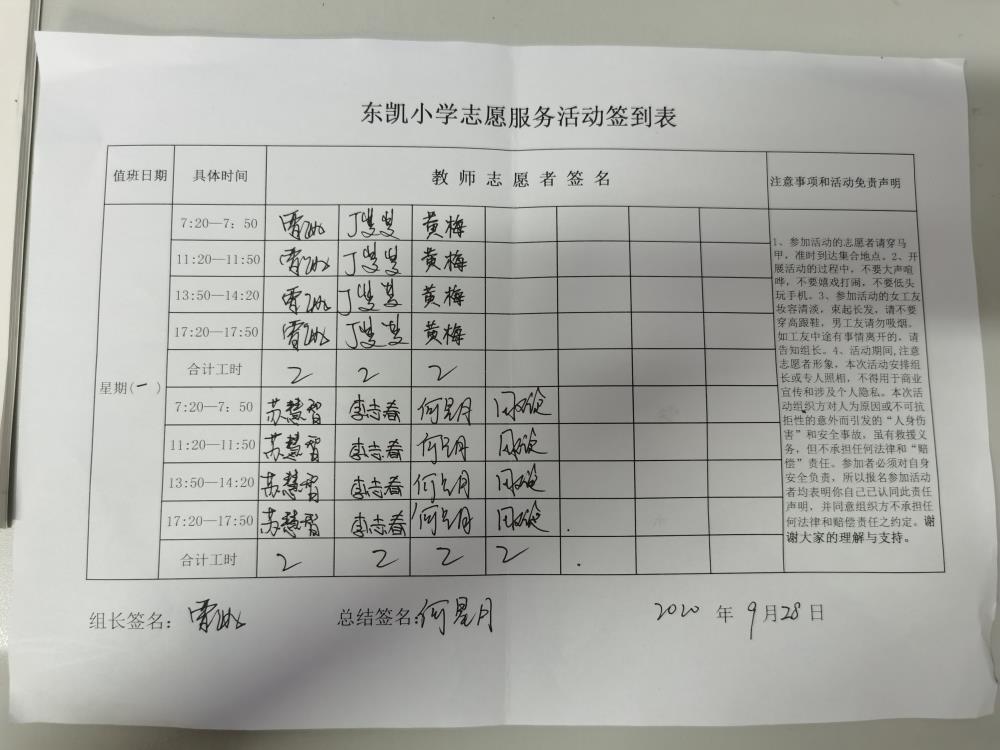 东凯小学志愿服务活动签到表
值班日期 具体时间 教师志愿者签名 注意事项和活动免责声明
7:20—7：50 丁慧慧 黄梅
11:20—11:50 丁慧慧 黄梅
13:50—14:20 丁慧慧 黄梅
17:20—17:50 丁慧慧 黄梅
合计工时 2 2 2
星期(一)
7:20—7：50 苏慧智 李志春 何星月
11:20—11:50 苏慧智 李志春 何星月
13:50—14:20 苏慧智 李志春 何星月
17:20—17:50 苏慧智 李志春 何星月
合计工时 2 2 2 2
1、参加活动的志愿者请穿马
甲，准时到达集合地点。2、开
展活动的过程中，不要大声喧
哗，不要嬉戏打闹，不要低头
玩手机。3、参加活动的女工友
妆容清淡，束起长发，请不要
穿高跟鞋，男工友请勿吸烟。
如工友中途有事情离开的，请
告知组长。4、活动期间,注意
志愿者形象，本次活动安排组
长或专人照相，不得用于商业
宣传和涉及个人隐私。本次活
动组织方对人为原因或不可抗
拒性的意外而引发的“人身伤
害”和安全事故，虽有救援义
务，但不承担任何法律和“赔
偿”责任。参加者必须对自身
安全负责，所以报名参加活动
者均表明你自己已认同此责任
声明，并同意组织方不承担任
何法律和赔偿责任之约定。谢
谢大家的理解与支持。
组长签名： 总结签名:何星月 2020 年 9月28日